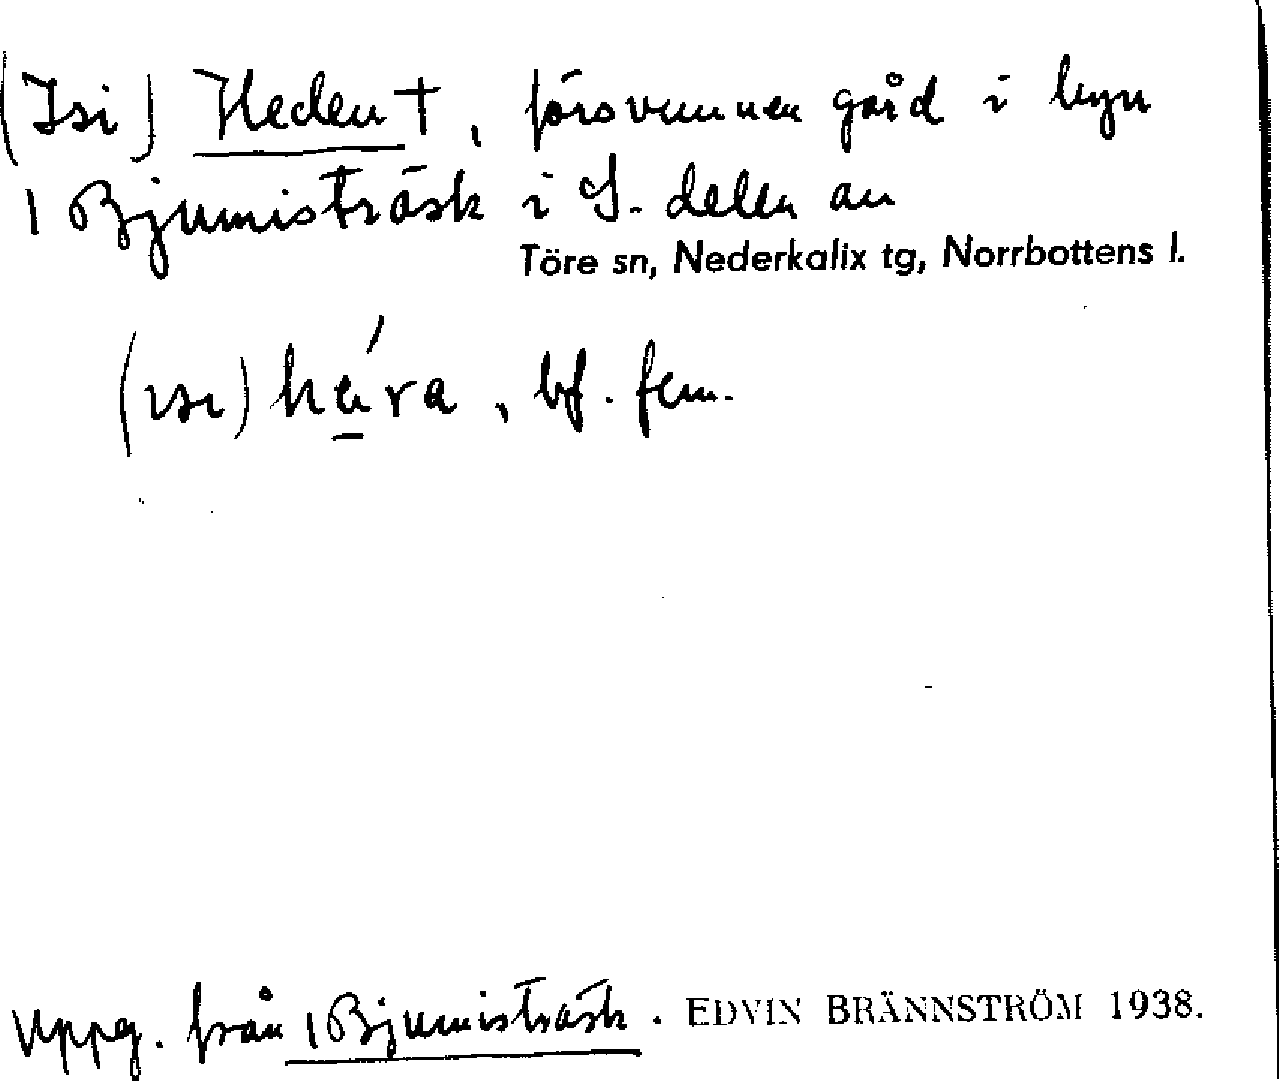 (Isi) Heden †, försvunnen gård i byn
1 Bjumisträsk i S. delen av
Töre sn, Nederkalix tg, Norrbottens l.
(ısı) hę́ra, bf. fem.
Uppg. från 1 Bjumisträsk. EDVIN BRÄNNSTRÖM 1938.